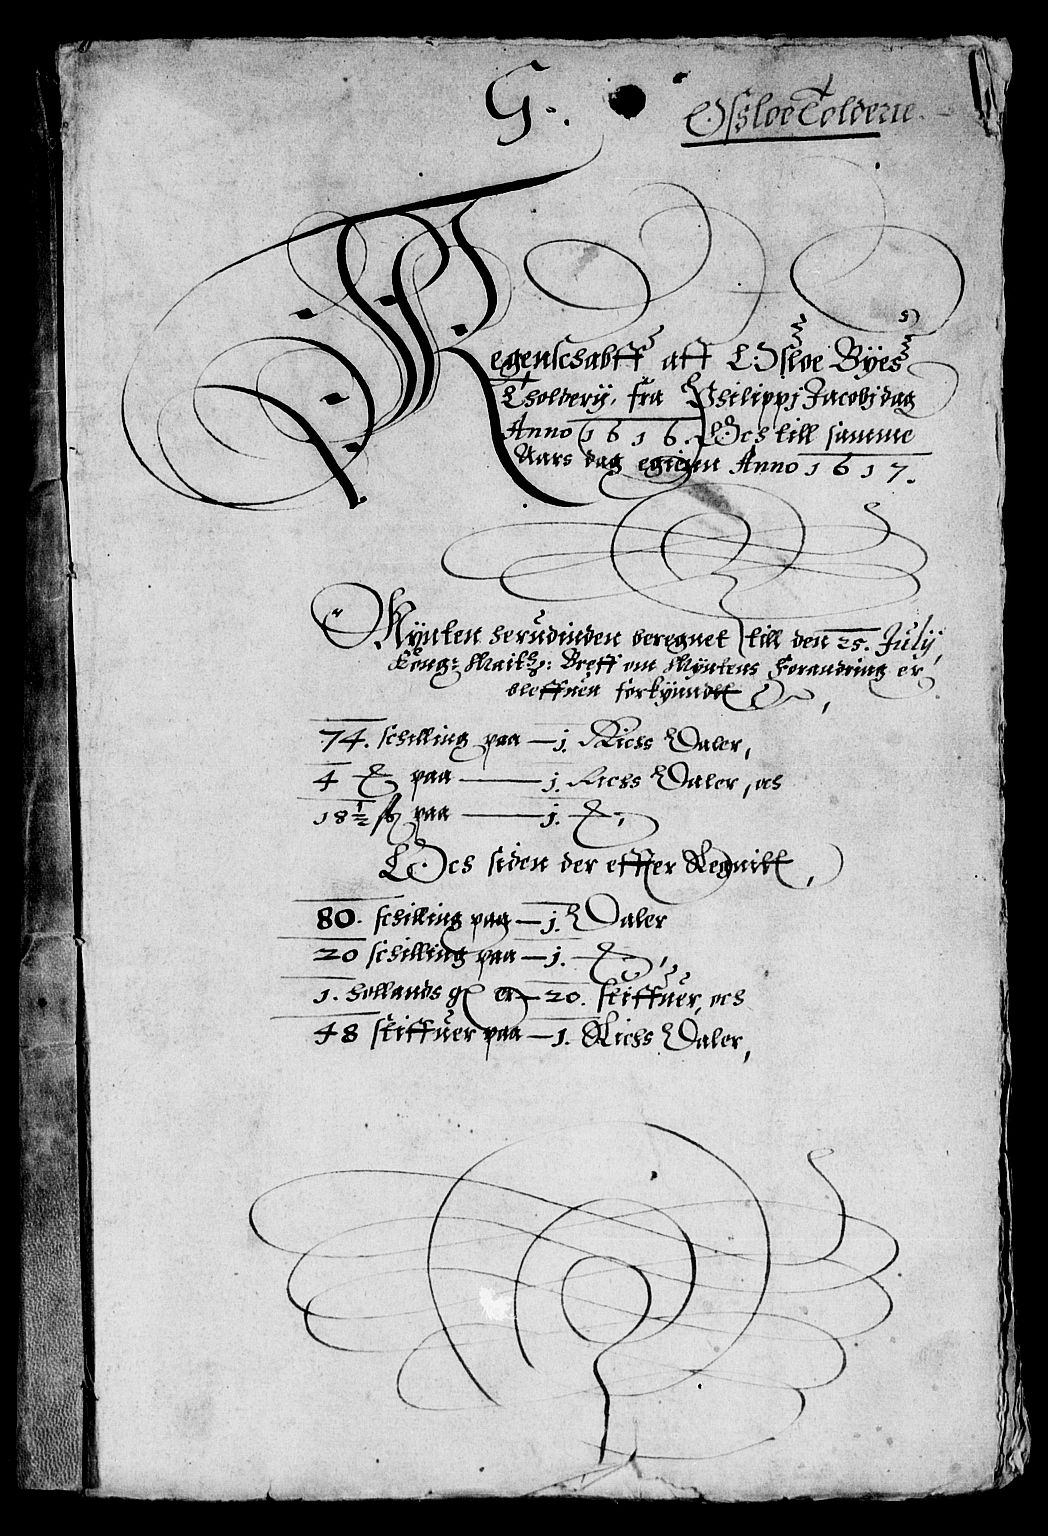 G.
Osloe Tolderie.
Regenschabff aff Osloe Byes
Tholderij, fra Philippj Jacobj dag
Anno 1616. Och till samme
Aars dag egienn Anno 1617.
Mÿnten herudinden beregnet till den 25. Julij,
Kong: Maitz: Breff om Mÿntens Forandring er
bleffuen forkÿnndt,
74. schilling paa — j. Richs Daler,
4 paa — j. Richs Daler, och
18½ ß paa — j.
Och siden der effter Regnitt,
80. schilling paa — j. Daler
20 schilling paa — j.
1. hollands gl er — 20. stiffuer, och
48 stiffuer paa — 1. Richs Daler,